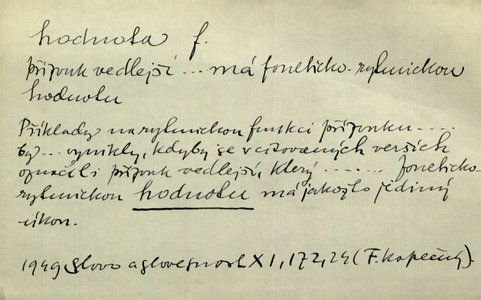 hodnota f.
přízvuk vedlejší ... má foneticko-rytmickou
hodnotu
Příklady na rytmickou funkci přízvuku ....
by ... vynikly, kdyby se v citovaných verších
označil i přízvuk vedlejší, který ....... foneticko-
rytmickou hodnotu má jakožto jediný
úkon.
1949 Slovo a slovesnost XI, 172, 24 (F. Kopečný).